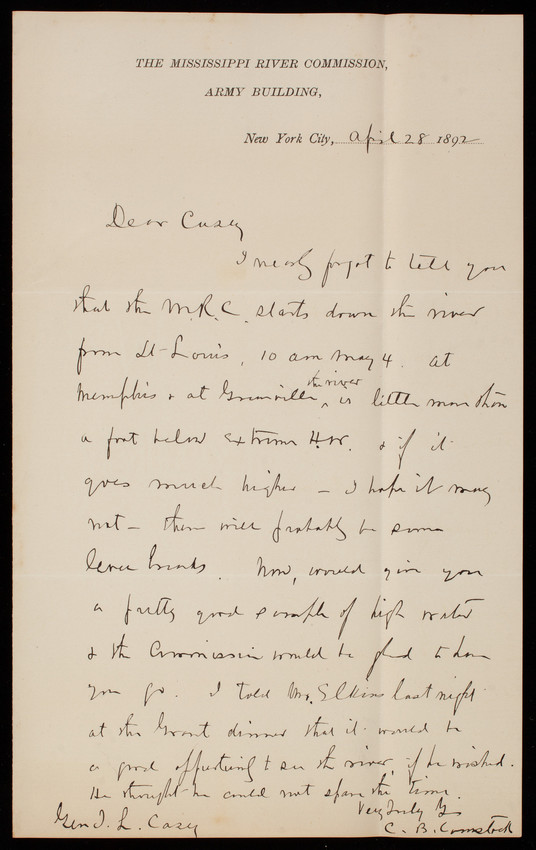 THE MISSISSIPPI RIVER COMMISSION,
ARMY BUILDING,
New York City, April 28 1892
Dear Casey
I nearly forgot to tell you
that the M.R.C. starts down the river
from St Louis, 10 am May 4. At
Memphis & at Greenville, the river is little more than
a foot below extreme H.W. & if it
goes much higher – I hope it may
not – there will probably be some
levee breaks. Now, would give you
a pretty good sample of high water
& the Commission would be glad to have
you go. I told Mr. Elkins last night
at the Grant dinner that it would be
a good opportunity to see the river, if he wished.
He thought he could not spare the time.
Very truly Yrs
Gen T. L. Casey
C. B. Comstock